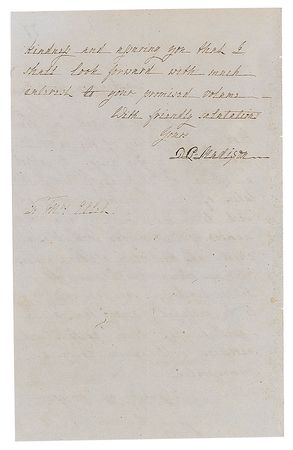 kindness and assuring you that I
shall look forward with much
interest to your promised volume
With friendly salutations
Yours
D. P. Madison
To Mrs.